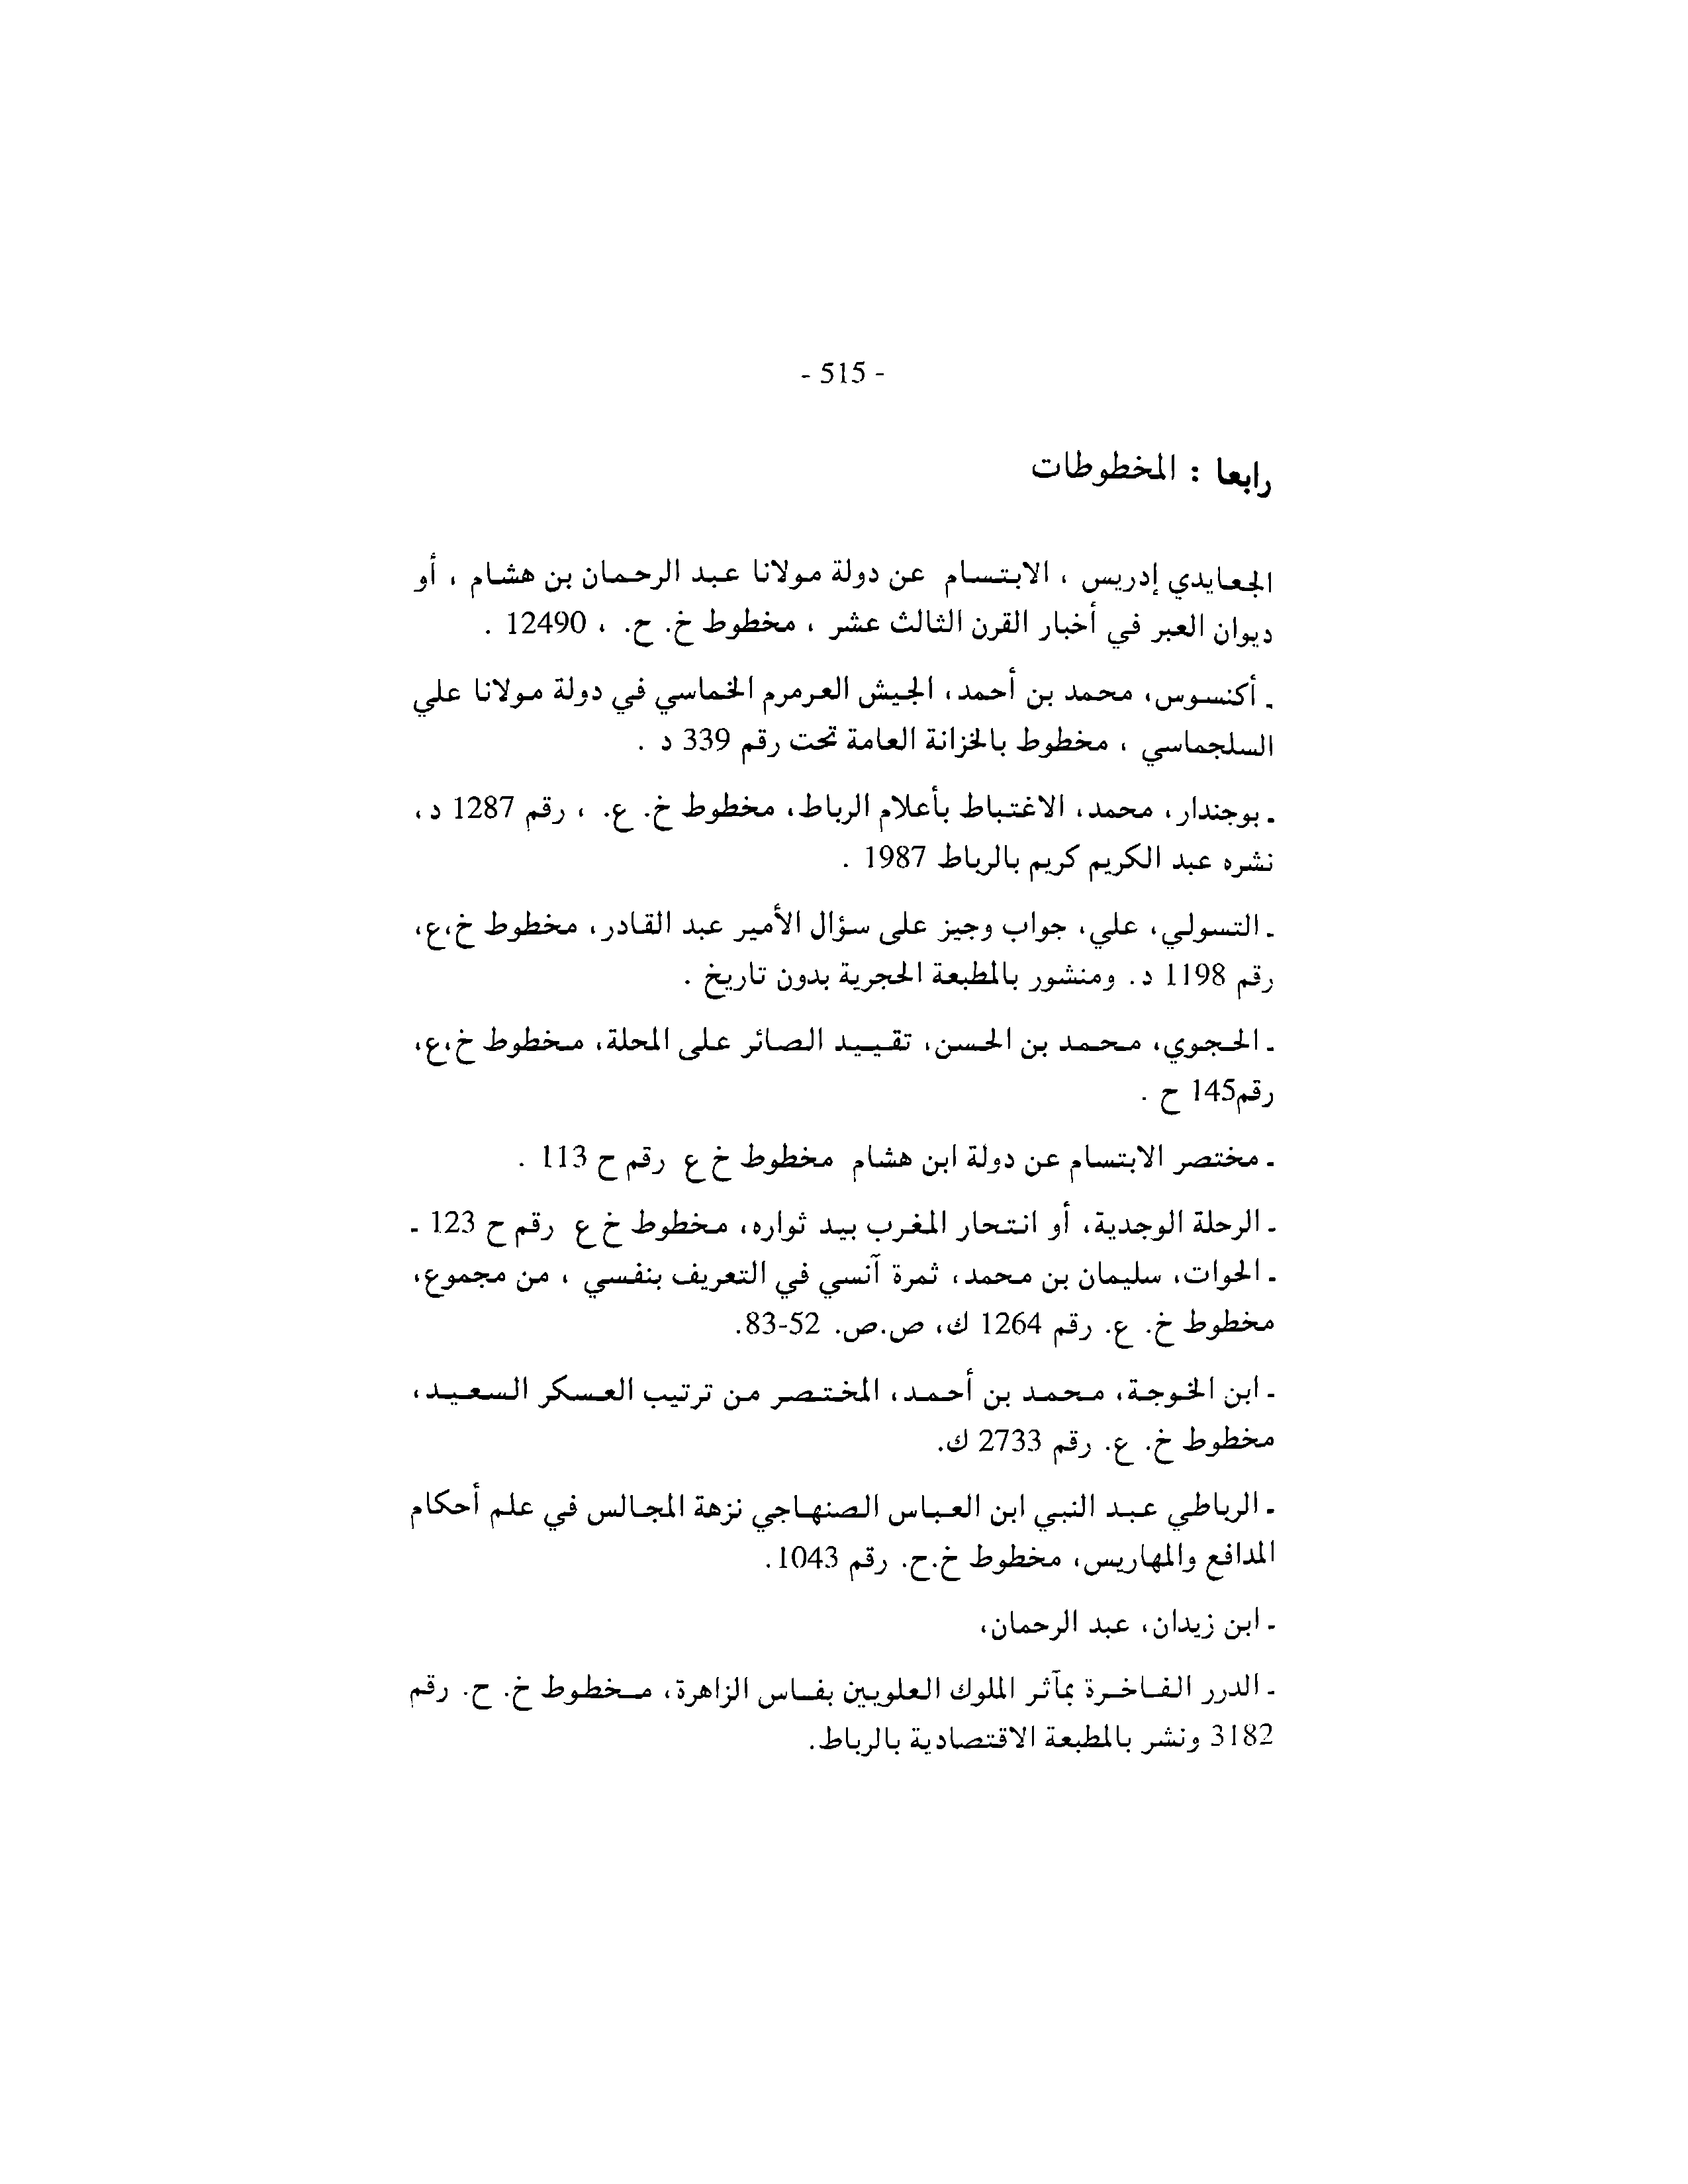 - 515 -
رابعا : المخطوطات
الجعايدي إدريس ، الابتسام عن دولة مولانا عبد الرحمان بن هشام ، أو
ديوان العبر في أخبار القرن الثالث عشر ، مخطوط خ. ح. ، 12490 .
ـ أكنسوس، محمد بن أحمد، الجيش العرمرم الخماسي في دولة مولانا علي
السلجماسي ، مخطوط بالخزانة العامة تحت رقم 339 د .
ـ بوجندار، محمد، الاغتباط بأعلام الرباط، مخطوط خ. ع. ، رقم 1287 د،
نشره عبد الكريم كريم بالرباط 1987 .
ـ التسولي، علي، جواب وجيز على سؤال الأمير عبد القادر، مخطوط خ،ع،
رقم 1198 د. ومنشور بالمطبعة الحجرية بدون تاريخ .
ـ الحجوي، محمد بن الحسن، تقييد الصائر على المحلة، مخطوط خ،ع،
رقم145 ح .
ـ مختصر الابتسام عن دولة ابن هشام مخطوط خ ع رقم ح 113 .
ـ الرحلة الوجدية، أو انتحار المغرب بيد ثواره، مخطوط خ ع رقم ح 123 ـ
ـ الحوات، سليمان بن محمد، ثمرة آنسي في التعريف بنفسي ، من مجموع،
مخطوط خ. ع. رقم 1264 ك، ص.ص. 52-83.
ـ ابن الخوجة، محمد بن أحمد، المختصر من ترتيب العسكر السعيد،
مخطوط خ. ع. رقم 2733 ك.
ـ الرباطي عبد النبي ابن العباس الصنهاجي نزهة المجالس في علم أحكام
المدافع والمهاريس، مخطوط خ.ح. رقم 1043.
ـ ابن زيدان، عبد الرحمان،
ـ الدرر الفاخرة بمآثر الملوك العلويين بفاس الزاهرة، مخطوط خ. ح. رقم
3182 ونشر بالمطبعة الاقتصادية بالرباط.